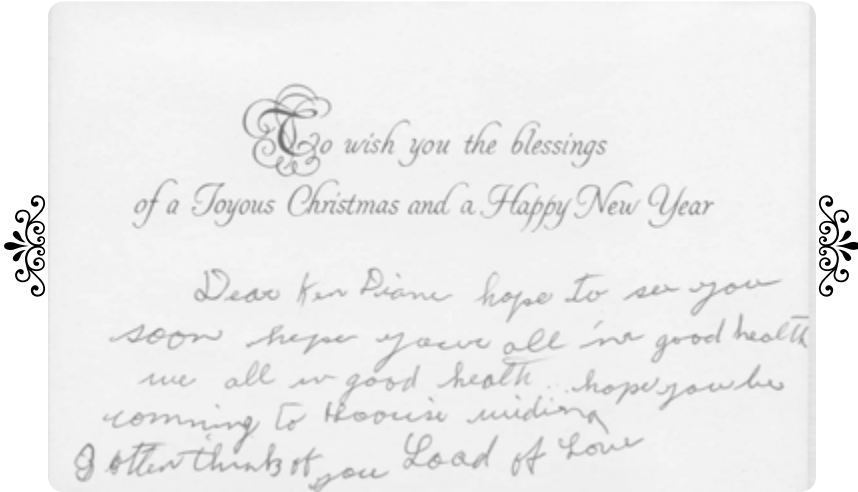 To wish you the blessings
of a Joyous Christmas and a Happy New Year
Dear Ken Diane hope to see you
soon hope your all in good health
we all in good health .. hope you be
comming to
I often think of you Load of Love